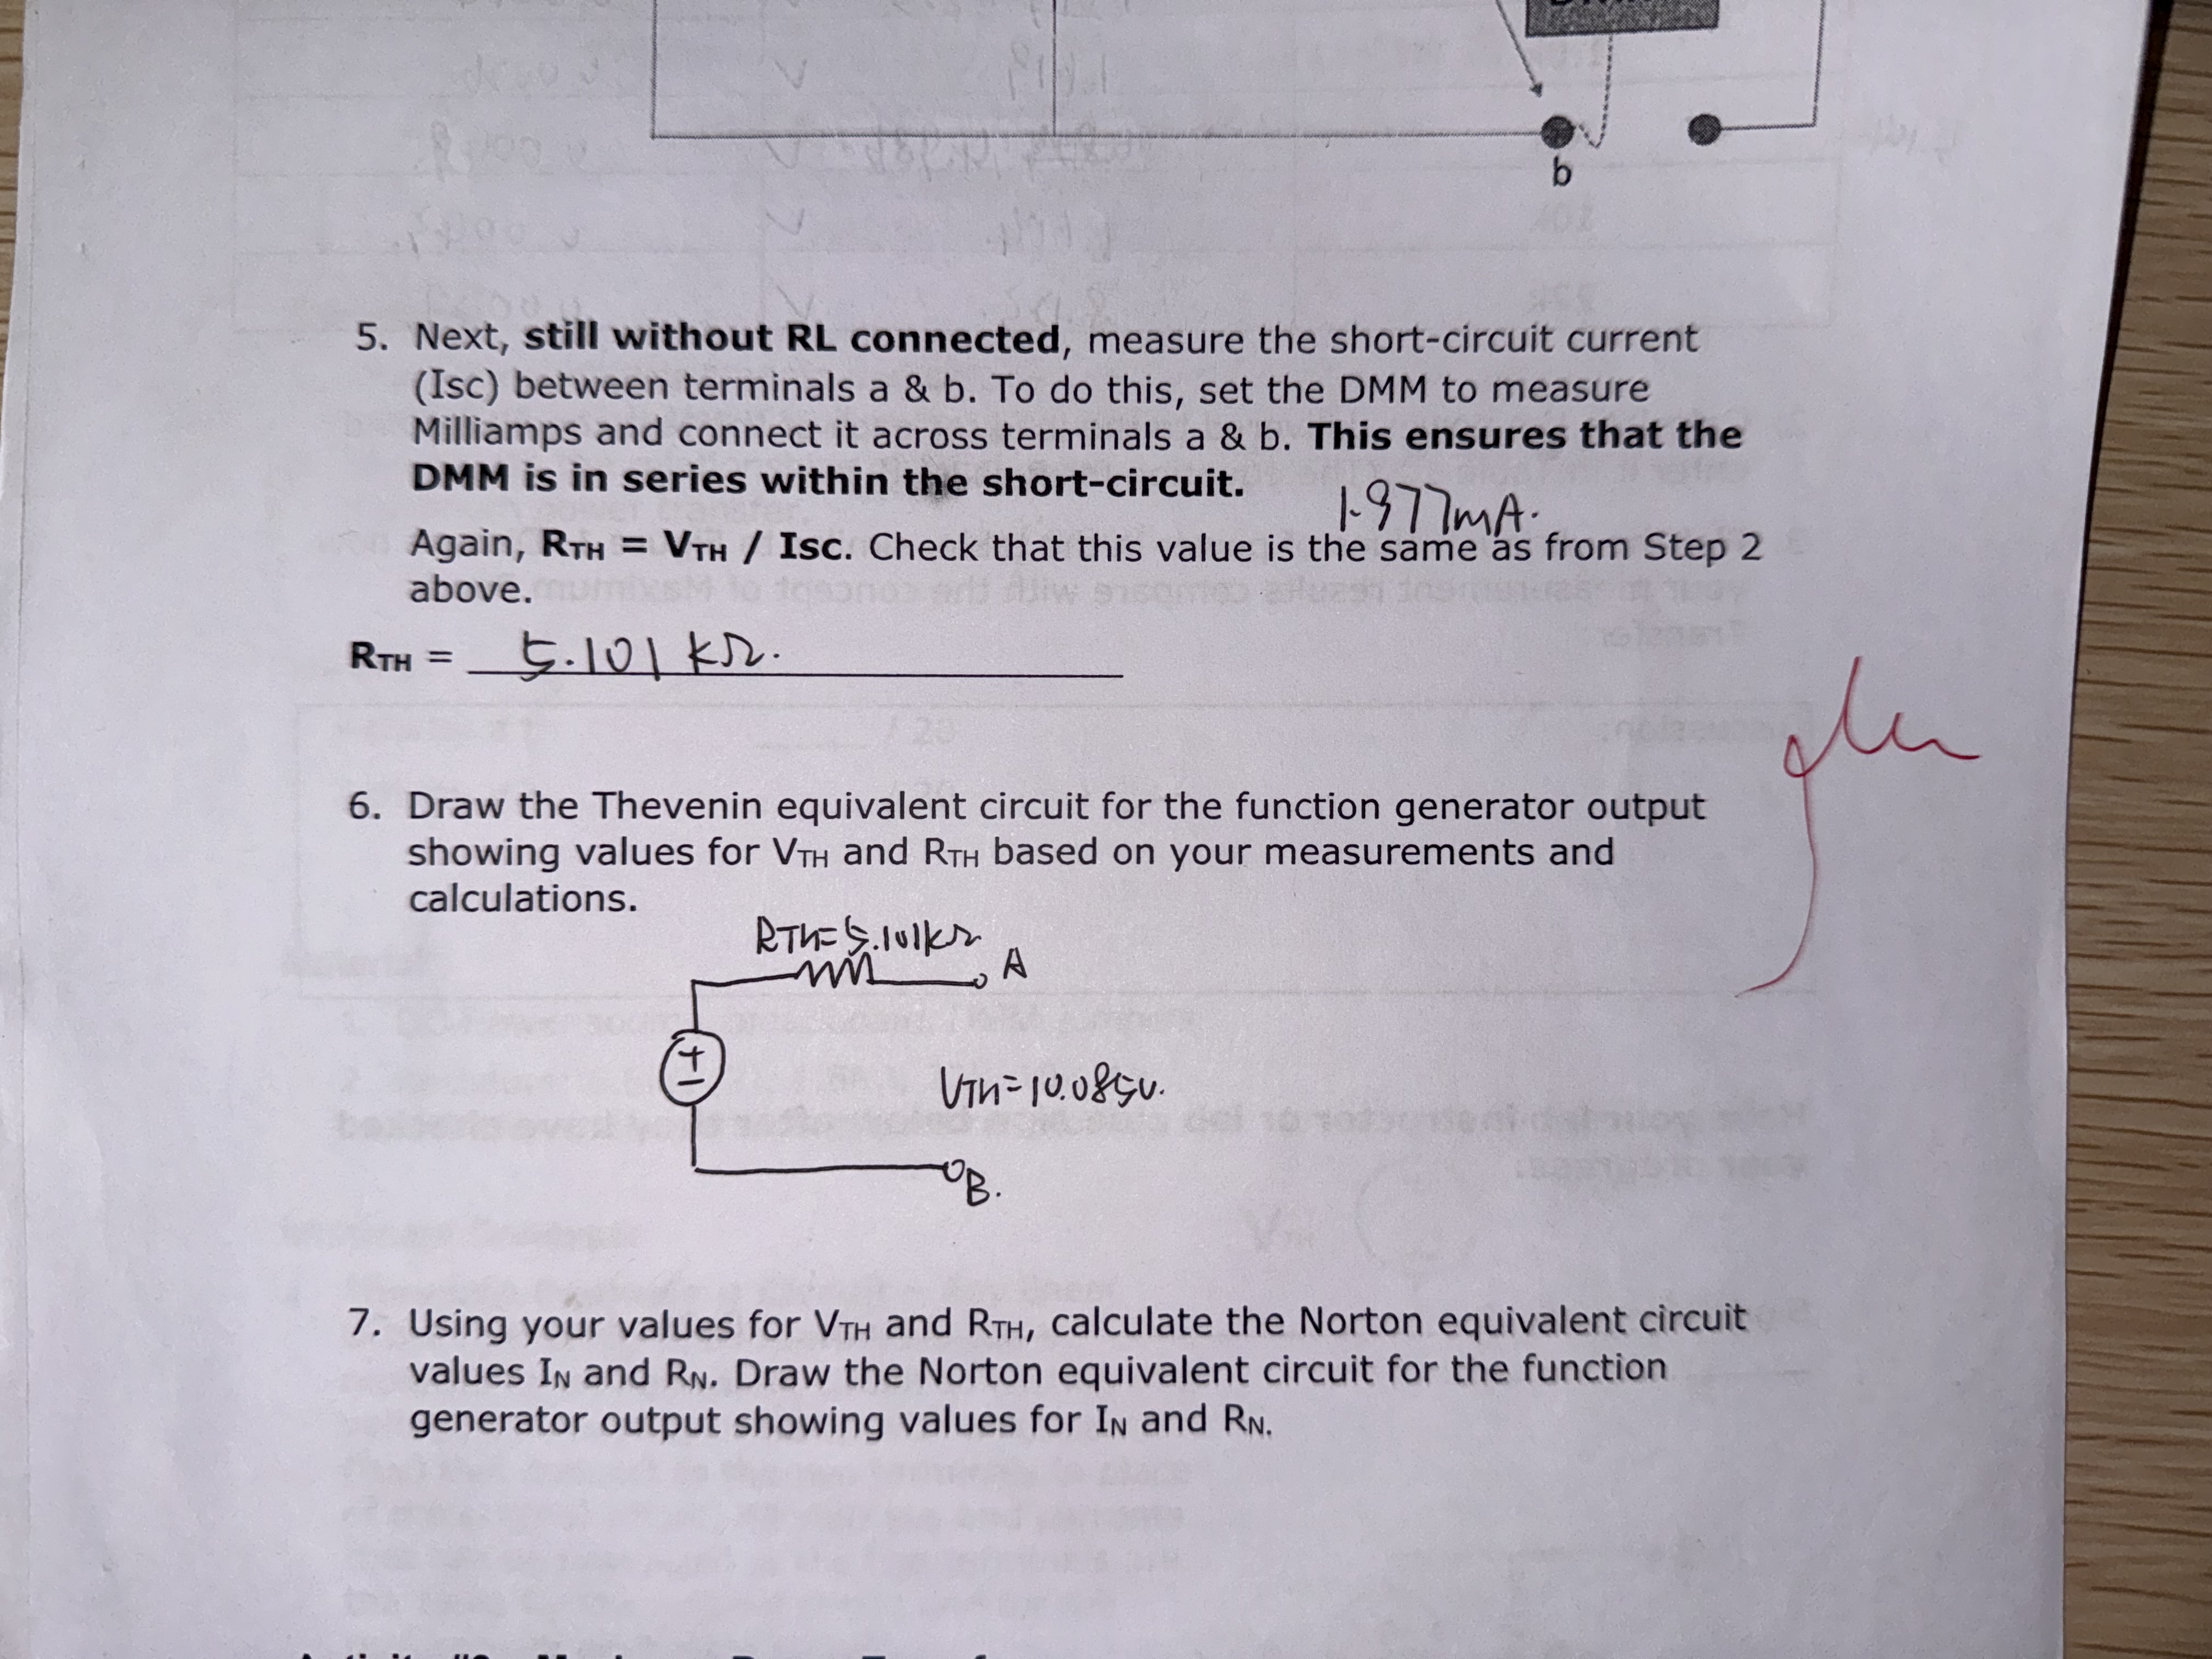 b
5. Next, still without RL connected, measure the short-circuit current
(Isc) between terminals a & b. To do this, set the DMM to measure
Milliamps and connect it across terminals a & b. This ensures that the
DMM is in series within the short-circuit.
1.977mA.
Again, RTH = VTH / Isc. Check that this value is the same as from Step 2
above.
RTH = 5.101 kΩ.
6. Draw the Thevenin equivalent circuit for the function generator output
showing values for VTH and RTH based on your measurements and
calculations.
RTh=5.101kΩ
A
+
−
VTh=10.085v.
B.
7. Using your values for VTH and RTH, calculate the Norton equivalent circuit
values IN and RN. Draw the Norton equivalent circuit for the function
generator output showing values for IN and RN.